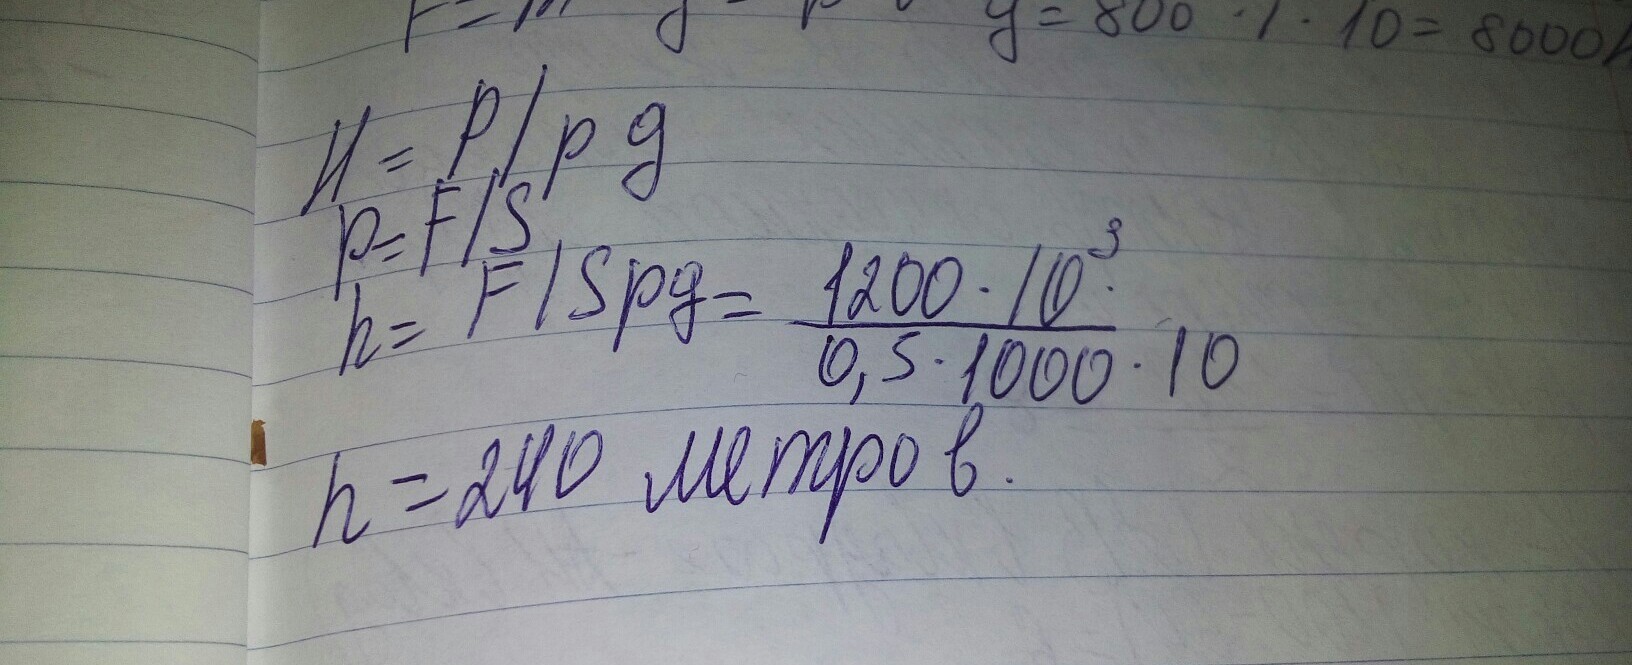 g = 800 · 1 · 10 = 8000
H = P/pg
p = F/S
h = F/Spg = 1200 · 10³ · / 0,5 · 1000 · 10
h = 240 метров.